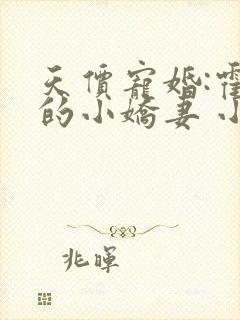 天價寵婚:霍
的小嬌妻 小
兆暉